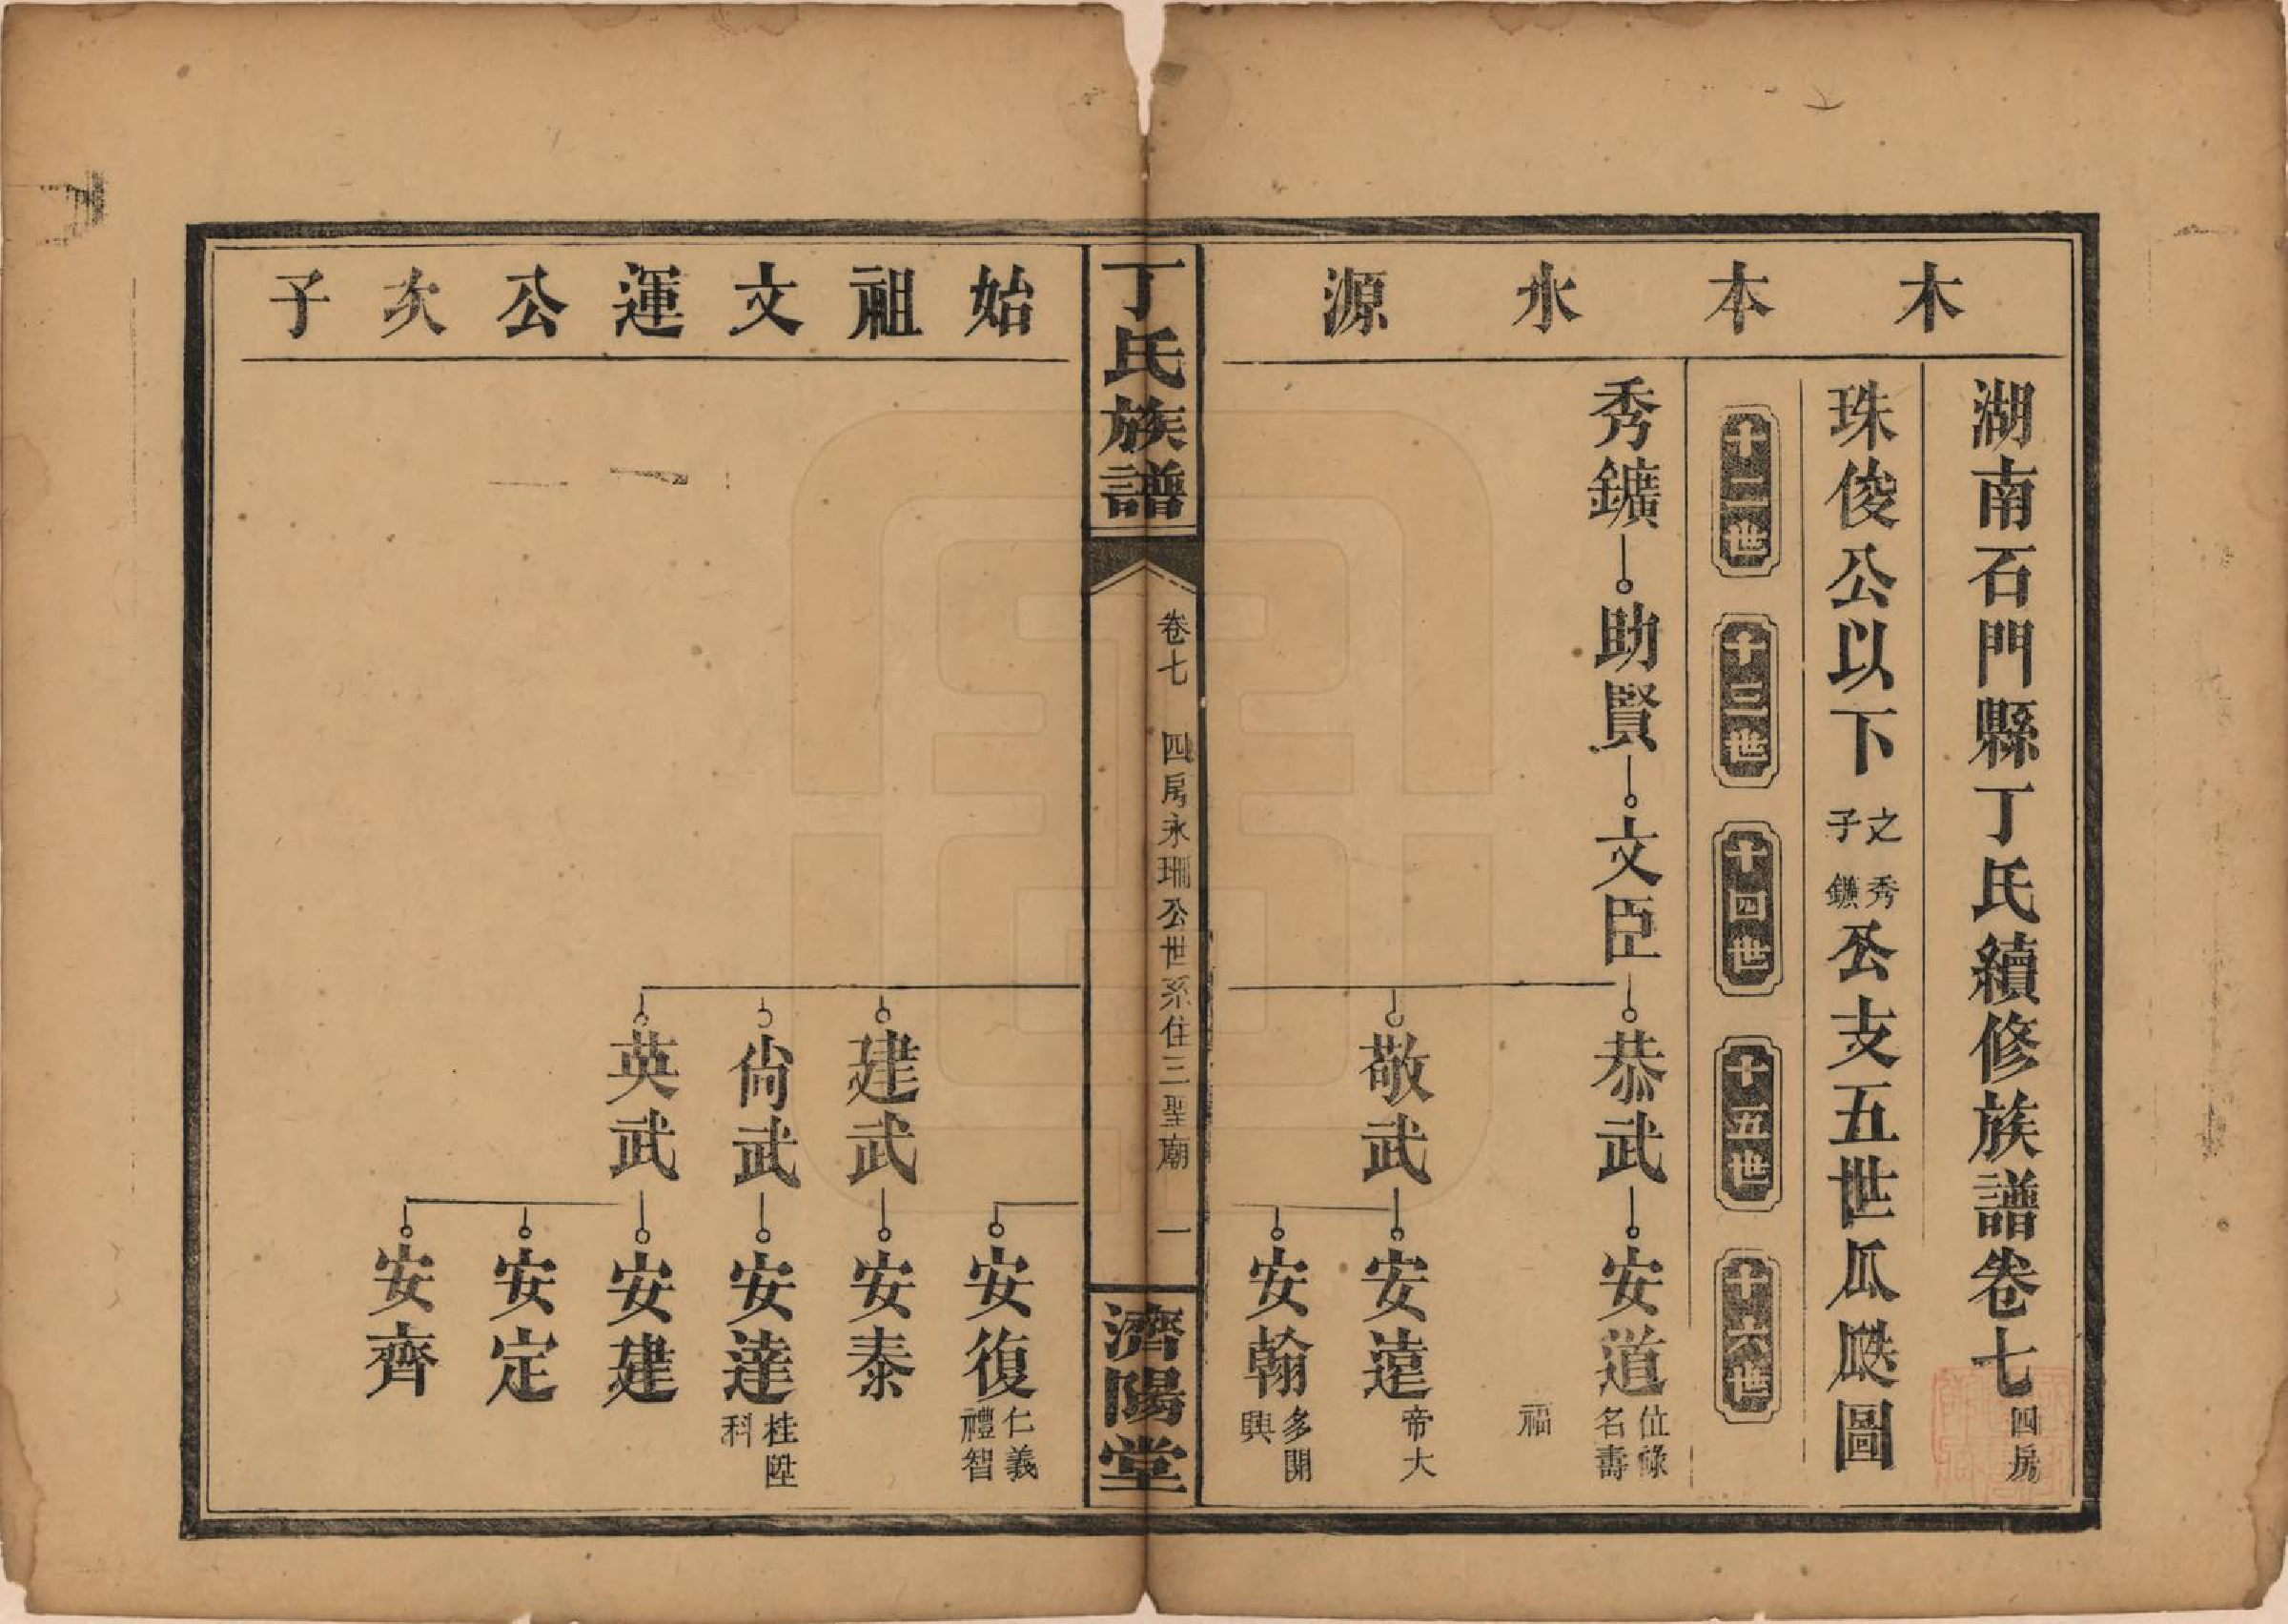 木本水源
湖南石門縣丁氏續修族譜卷七 四房
珠俊公以下之子秀鑛公支五世瓜瓞圖
十二世 十三世 十四世 十五世 十六世
秀鑛 助賢 文臣 恭武 安道 位祿 名壽
福
敬武 安遠 帝大
安翰 多開 興
丁氏族譜 卷七 四房永珊公世系住三聖廟 一 濟陽堂
始祖文運公次子
安復 仁義 禮智
建武 安泰
尙武 安達 桂陞 科
英武 安建
安定
安齊